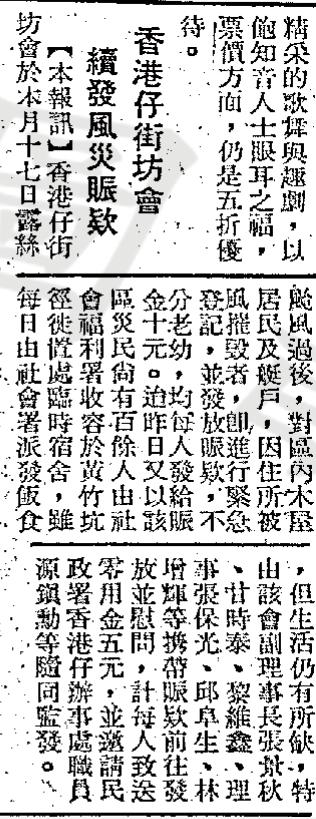 精采的歌舞與趣劇，以
飽知音人士眼耳之福，
票價方面，仍是五折優
待。
香港仔街坊會
續發風災賑欵
【本報訊】香港仔街
坊會於本月十七日露絲
颱風過後，對區內木屋
居民及艇戶，因住所被
風摧毀者，卽進行緊急
登記，並發放賑欵，不
分老幼，均每人發給賑
金十元。迨昨日又以該
區災民尙有百餘人由社
會福利署收容於黃竹坑
徑徙置處臨時宿舍，雖
每日由社會署派發飯食
，但生活仍有所缺，特
由該會副理事長張景秋
、甘時泰、黎維鑫、理
事張保光、邱阜生、林
增輝等携帶賑欵前往發
放並慰問，計每人致送
零用金五元，並邀請民
政署香港仔辦事處職員
源鎮勳等隨同監發。